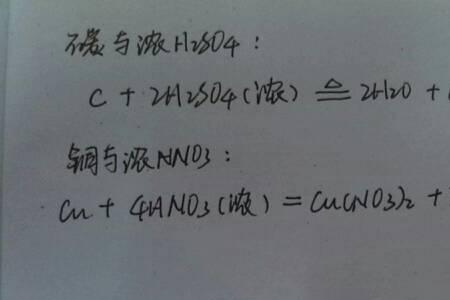 碳与浓H2SO4：
C + 2H2SO4(浓) ≜ 2H2O +
铜与浓HNO3：
Cu + 4HNO3(浓) = Cu(NO3)2 +